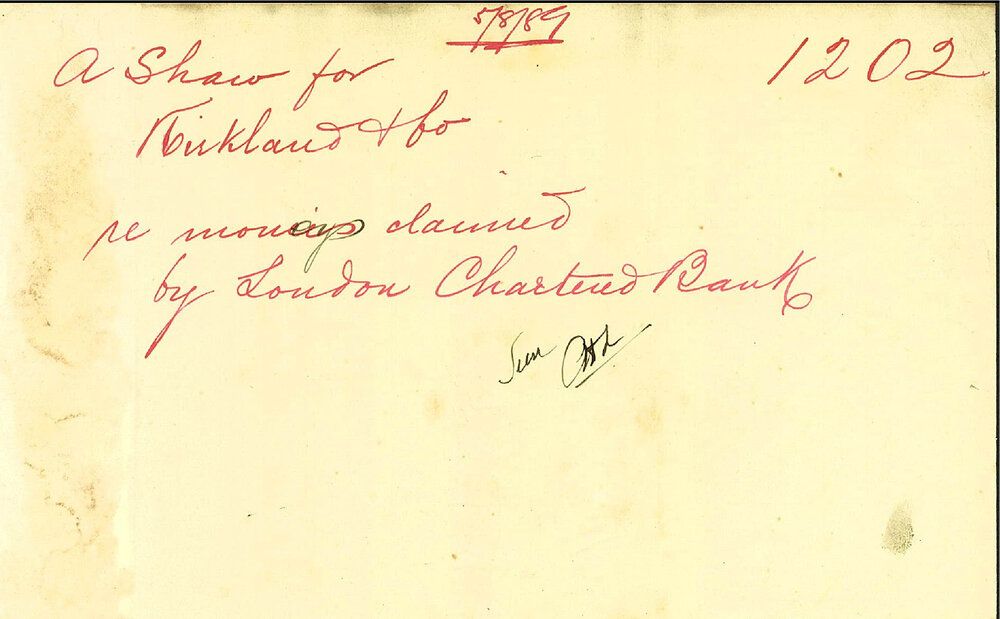 5/8/89
1202
A Shaw for
Kirkland & Co
re moneys claimed
by London Chartered Bank
Seen